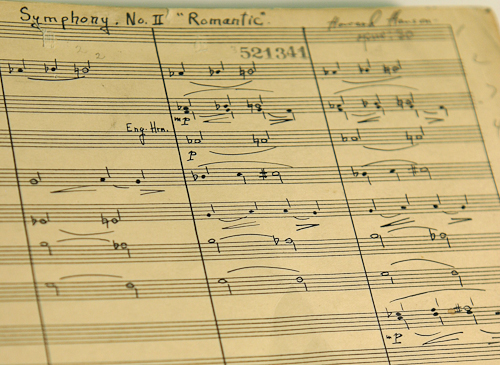 Symphony. No. II "Romantic".
Howard Hanson.
521341
mp
Eng. Hrn.
p
mp